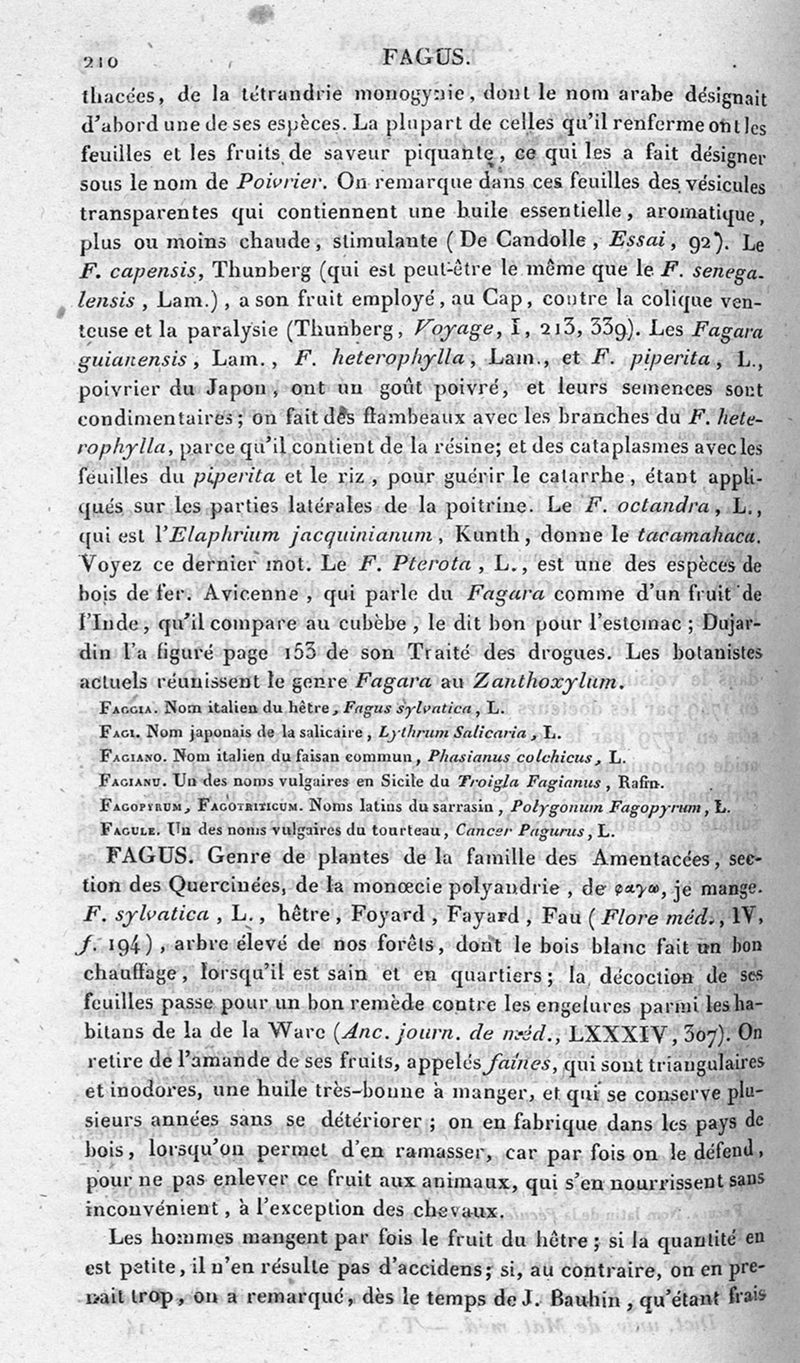 210 FAGUS.
thacées, de la tétrandrie monogynie, dont le nom arabe désignait
d'abord une de ses espèces. La plupart de celles qu'il renferme ont les
feuilles et les fruits de saveur piquante, ce qui les a fait désigner
sous le nom de Poivrier. On remarque dans ces feuilles des vésicules
transparentes qui contiennent une huile essentielle, aromatique,
plus ou moins chaude, stimulante (De Candolle, Essai, 92). Le
F. capensis, Thunberg (qui est peut-être le même que le F. senega-
lensis, Lam.), a son fruit employé, au Cap, contre la colique ven-
teuse et la paralysie (Thunberg, Voyage, I, 213, 339). Les Fagara
guianensis, Lam., F. heterophylla, Lam., et F. piperita, L.,
poivrier du Japon, ont un goût poivré, et leurs semences sont
condimentaires; on fait des flambeaux avec les branches du F. hete-
rophylla, parce qu'il contient de la résine; et des cataplasmes avec les
feuilles du piperita et le riz, pour guérir le catarrhe, étant appli-
qués sur les parties latérales de la poitrine. Le F. octandra, L.,
qui est l'Elaphrium jacquinianum, Kunth, donne le tacamahaca.
Voyez ce dernier mot. Le F. Pterota, L., est une des espèces de
bois de fer. Avicenne, qui parle du Fagara comme d'un fruit de
l'Inde, qu'il compare au cubèbe, le dit bon pour l'estomac; Dujar-
din l'a figuré page 153 de son Traité des drogues. Les botanistes
actuels réunissent le genre Fagara au Zanthoxylum.
FAGGIA. Nom italien du hêtre, Fagus sylvatica, L.
FAGI. Nom japonais de la salicaire, Lythrum Salicaria, L.
FAGIANO. Nom italien du faisan commun, Phasianus colchicus, L.
FAGIANU. Un des noms vulgaires en Sicile du Troigla Fagianus, Rafin.
FAGOPYRUM, FAGOTRITICUM. Noms latins du sarrasin, Polygonum Fagopyrum, L.
FAGULE. Un des noms vulgaires du tourteau, Cancer Pagurus, L.
FAGUS. Genre de plantes de la famille des Amentacées, sec-
tion des Quercinées, de la monœcie polyandrie, de φαγω, je mange.
F. sylvatica, L., hêtre, Foyard, Fayard, Fau (Flore méd., IV,
f. 194), arbre élevé de nos forêts, dont le bois blanc fait un bon
chauffage, lorsqu'il est sain et en quartiers; la décoction de ses
feuilles passe pour un bon remède contre les engelures parmi les ha-
bitans de la de la Warc (Anc. journ. de méd., LXXXIV, 307). On
retire de l'amande de ses fruits, appelés faînes, qui sont triangulaires
et inodores, une huile très-bonne à manger, et qui se conserve plu-
sieurs années sans se détériorer; on en fabrique dans les pays de
bois, lorsqu'on permet d'en ramasser, car par fois on le défend,
pour ne pas enlever ce fruit aux animaux, qui s'en nourrissent sans
inconvénient, à l'exception des chevaux.
Les hommes mangent par fois le fruit du hêtre; si la quantité en
est petite, il n'en résulte pas d'accidens; si, au contraire, on en pre-
nait trop, on a remarqué, dès le temps de J. Bauhin, qu'étant frais